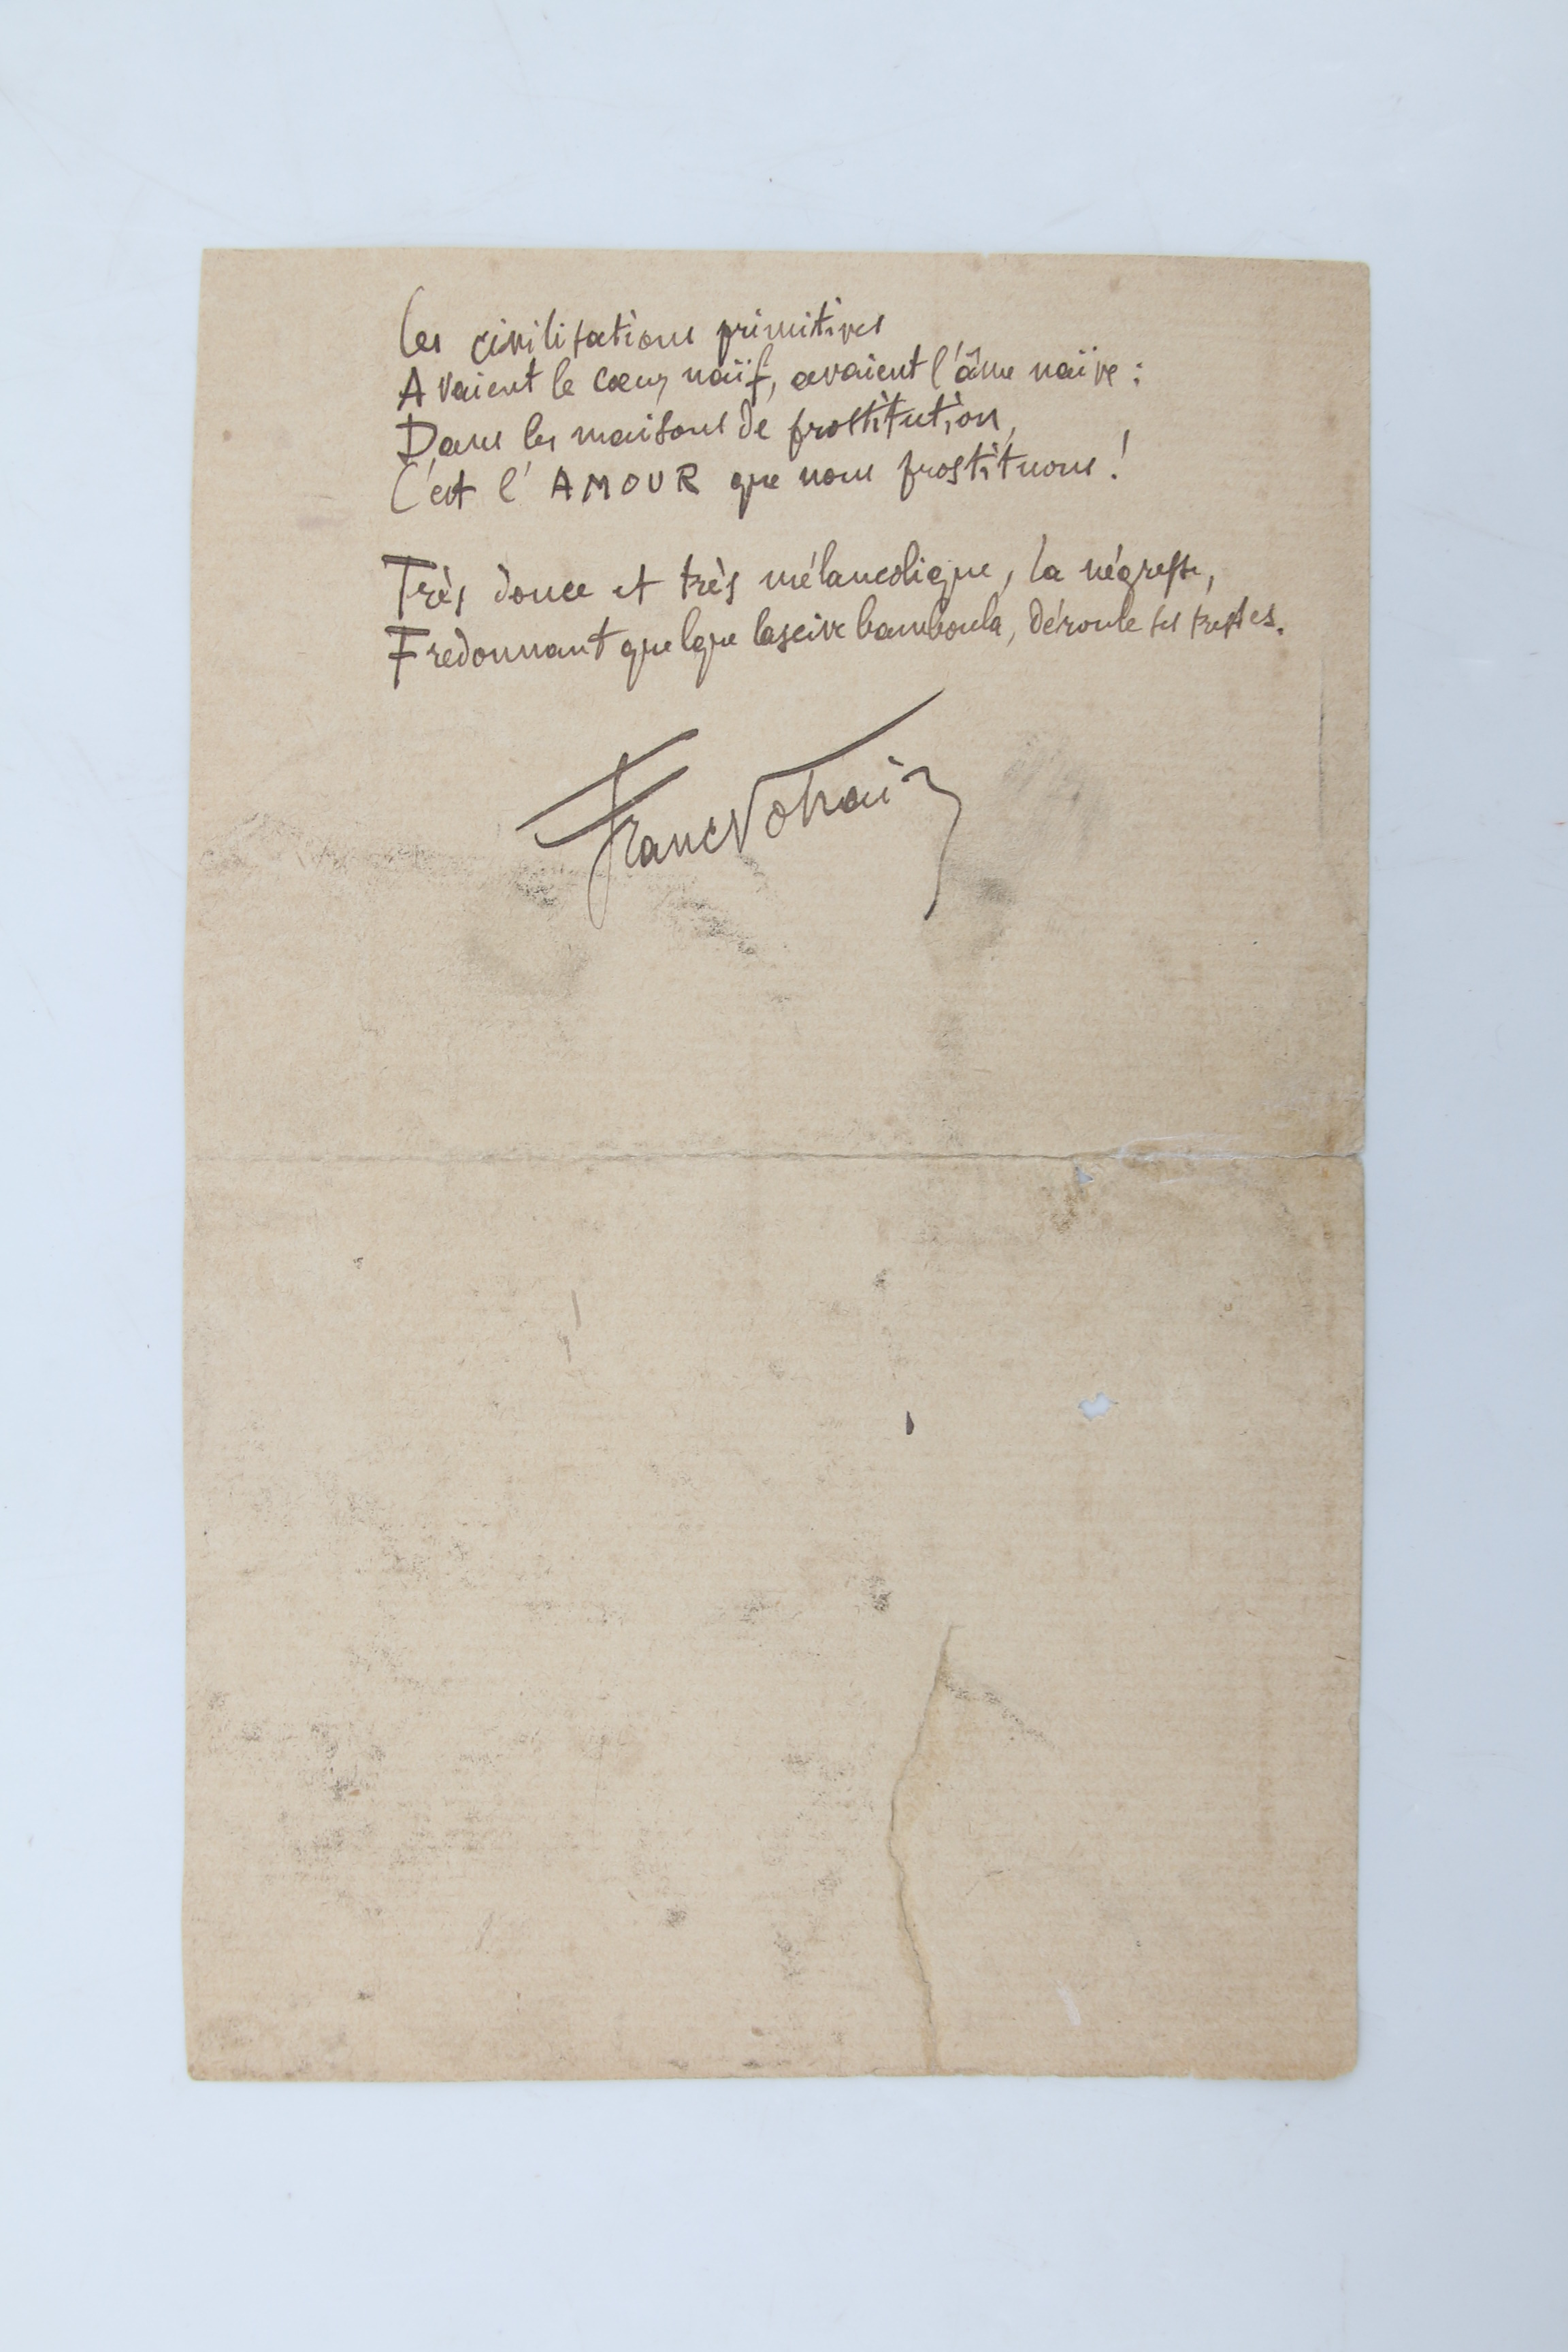 Les civilisations primitives
Avaient le cœur naïf, avaient l'âme naïve :
Dans les maisons de prostitution,
C'est l'AMOUR que nous prostituons !
Très douce et très mélancolique, la négresse,
Fredonnant quelque lascive bamboula, déroule ses tresses.
Franc Nohain